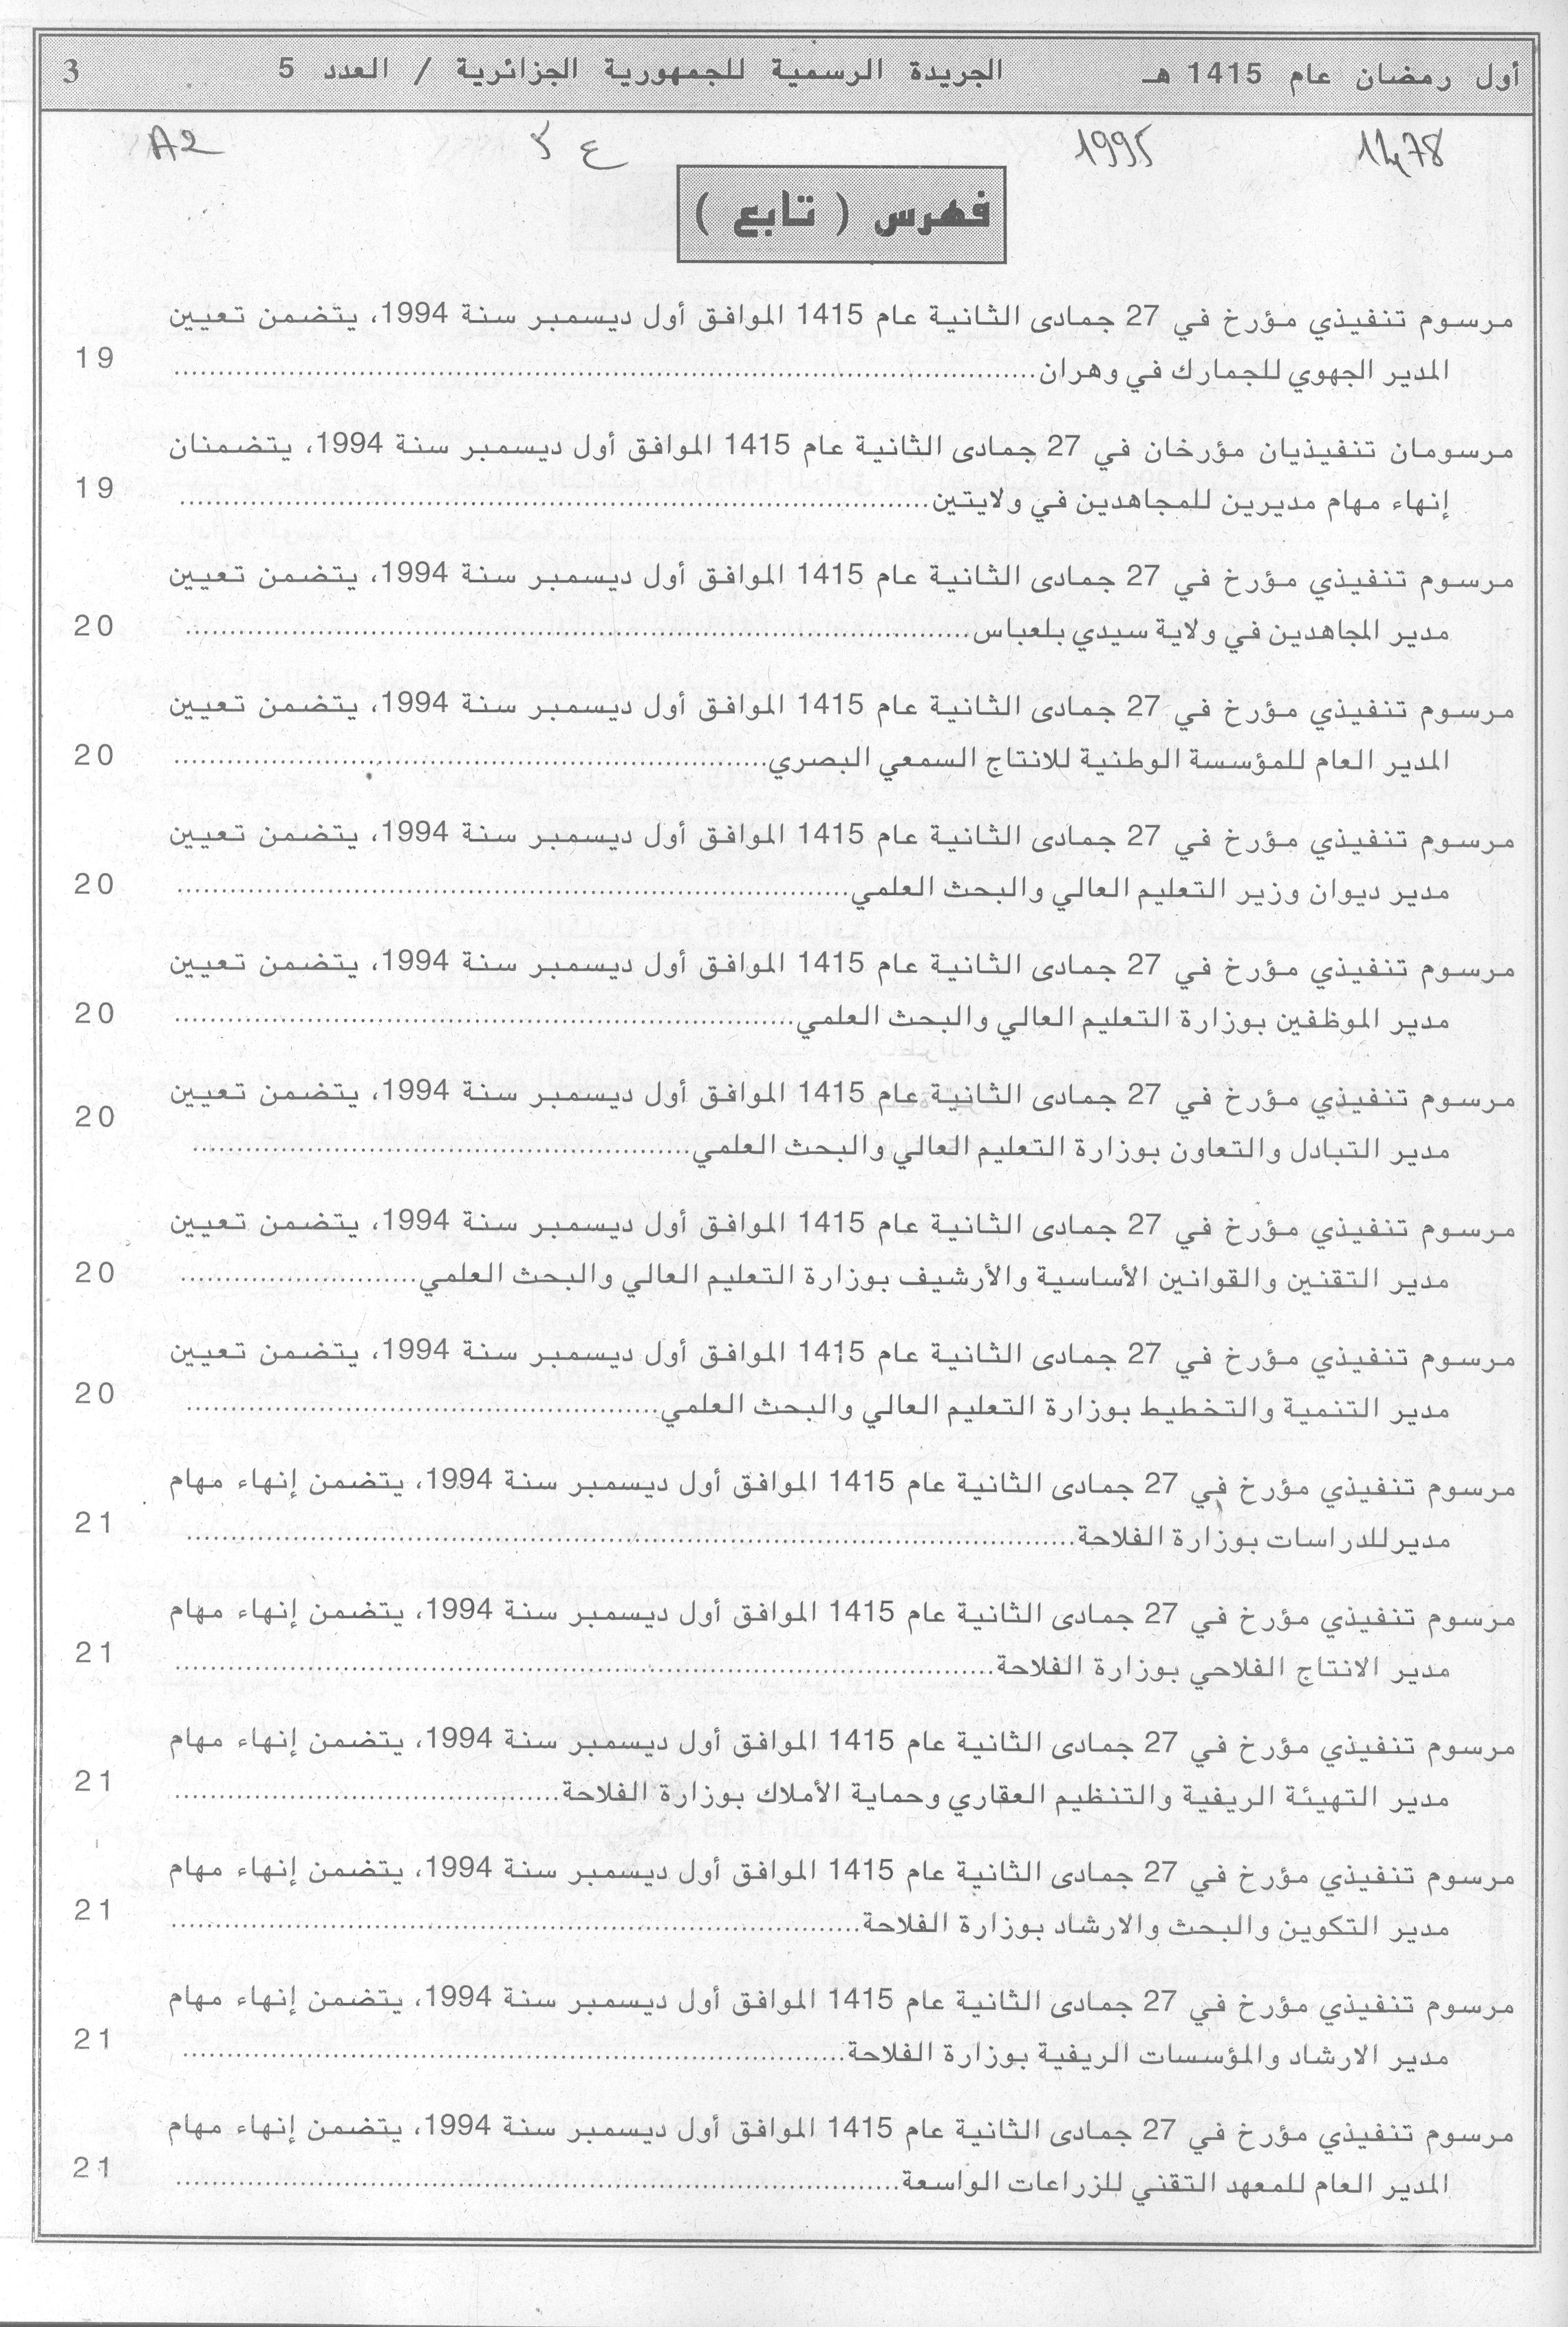 أول رمضان عام 1415 هـ الجريدة الرسمية للجمهورية الجزائرية / العدد 5 3
1995 A2
فهرس ( تابع )
مرسوم تنفيذي مؤرخ في 27 جمادى الثانية عام 1415 الموافق أول ديسمبر سنة 1994، يتضمن تعيين
المدير الجهوي للجمارك في وهران........ 19
مرسومان تنفيذيان مؤرخان في 27 جمادى الثانية عام 1415 الموافق أول ديسمبر سنة 1994، يتضمنان
إنهاء مهام مديرين للمجاهدين في ولايتين........ 19
مرسوم تنفيذي مؤرخ في 27 جمادى الثانية عام 1415 الموافق أول ديسمبر سنة 1994، يتضمن تعيين
مدير المجاهدين في ولاية سيدي بلعباس........ 20
مرسوم تنفيذي مؤرخ في 27 جمادى الثانية عام 1415 الموافق أول ديسمبر سنة 1994، يتضمن تعيين
المدير العام للمؤسسة الوطنية للانتاج السمعي البصري........ 20
مرسوم تنفيذي مؤرخ في 27 جمادى الثانية عام 1415 الموافق أول ديسمبر سنة 1994، يتضمن تعيين
مدير ديوان وزير التعليم العالي والبحث العلمي........ 20
مرسوم تنفيذي مؤرخ في 27 جمادى الثانية عام 1415 الموافق أول ديسمبر سنة 1994، يتضمن تعيين
مدير الموظفين بوزارة التعليم العالي والبحث العلمي........ 20
مرسوم تنفيذي مؤرخ في 27 جمادى الثانية عام 1415 الموافق أول ديسمبر سنة 1994، يتضمن تعيين
مدير التبادل والتعاون بوزارة التعليم العالي والبحث العلمي........ 20
مرسوم تنفيذي مؤرخ في 27 جمادى الثانية عام 1415 الموافق أول ديسمبر سنة 1994، يتضمن تعيين
مدير التقنين والقوانين الأساسية والأرشيف بوزارة التعليم العالي والبحث العلمي........ 20
مرسوم تنفيذي مؤرخ في 27 جمادى الثانية عام 1415 الموافق أول ديسمبر سنة 1994، يتضمن تعيين
مدير التنمية والتخطيط بوزارة التعليم العالي والبحث العلمي........ 20
مرسوم تنفيذي مؤرخ في 27 جمادى الثانية عام 1415 الموافق أول ديسمبر سنة 1994، يتضمن إنهاء مهام
مدير للدراسات بوزارة الفلاحة........ 21
مرسوم تنفيذي مؤرخ في 27 جمادى الثانية عام 1415 الموافق أول ديسمبر سنة 1994، يتضمن إنهاء مهام
مدير الانتاج الفلاحي بوزارة الفلاحة........ 21
مرسوم تنفيذي مؤرخ في 27 جمادى الثانية عام 1415 الموافق أول ديسمبر سنة 1994، يتضمن إنهاء مهام
مدير التهيئة الريفية والتنظيم العقاري وحماية الأملاك بوزارة الفلاحة........ 21
مرسوم تنفيذي مؤرخ في 27 جمادى الثانية عام 1415 الموافق أول ديسمبر سنة 1994، يتضمن إنهاء مهام
مدير التكوين والبحث والارشاد بوزارة الفلاحة........ 21
مرسوم تنفيذي مؤرخ في 27 جمادى الثانية عام 1415 الموافق أول ديسمبر سنة 1994، يتضمن إنهاء مهام
مدير الارشاد والمؤسسات الريفية بوزارة الفلاحة........ 21
مرسوم تنفيذي مؤرخ في 27 جمادى الثانية عام 1415 الموافق أول ديسمبر سنة 1994، يتضمن إنهاء مهام
المدير العام للمعهد التقني للزراعات الواسعة........ 21